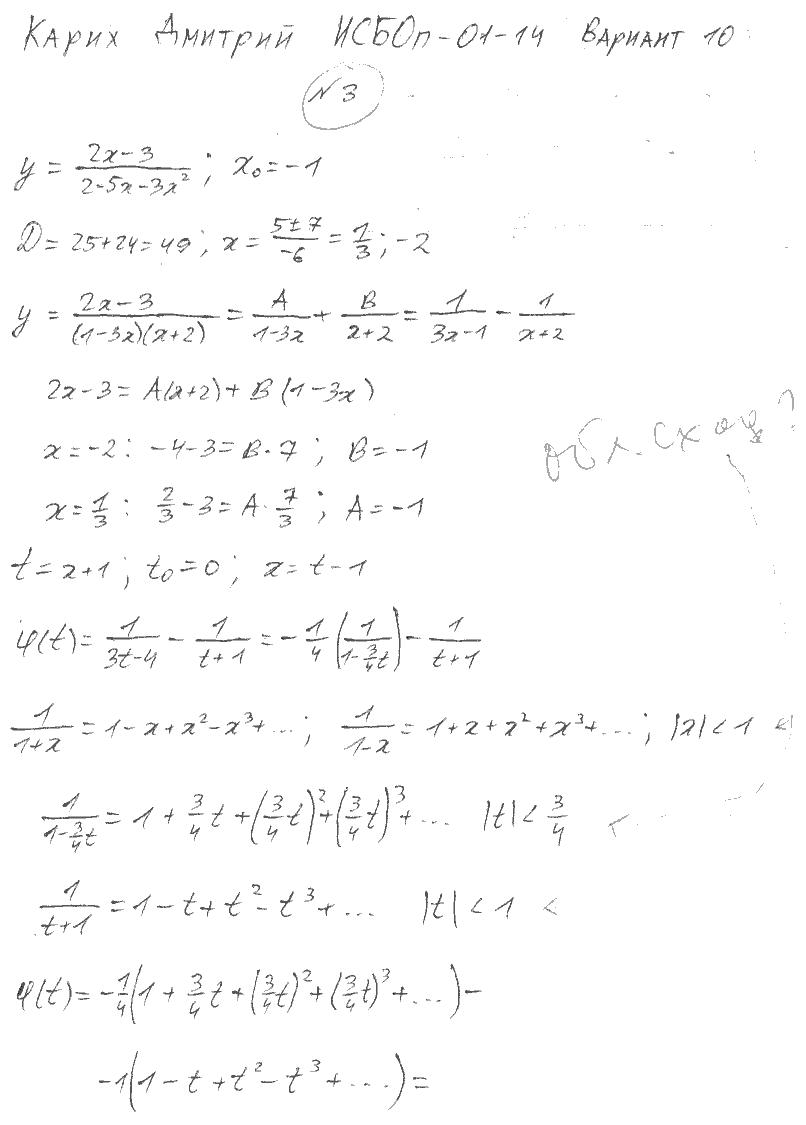 Карих Дмитрий ИСБОп-01-14 Вариант 10
№3
y = (2x-3)/(2-5x-3x²); x₀=-1
D=25+24=49; x = (5±7)/(-6) = 1/3; -2
y = (2x-3)/((1-3x)(x+2)) = A/(1-3x) + B/(x+2) = 1/(3x-1) - 1/(x+2)
2x-3 = A(x+2) + B(1-3x)
x=-2: -4-3=B·7; B=-1
обл. сход?
x=1/3: 2/3-3=A·7/3; A=-1
t=x+1; t₀=0; x=t-1
φ(t)= 1/(3t-4) - 1/(t+1) = -1/4 (1/(1-3/4t)) - 1/(t+1)
1/(1+x) = 1-x+x²-x³+...; 1/(1-x) = 1+x+x²+x³+...; |x|<1
1/(1-3/4t) = 1+3/4t+(3/4t)²+(3/4t)³+... |t|<3/4
1/(t+1) = 1-t+t²-t³+... |t|<1 <
φ(t)=-1/4(1+3/4t+(3/4t)²+(3/4t)³+...)-
-1(1-t+t²-t³+...)=